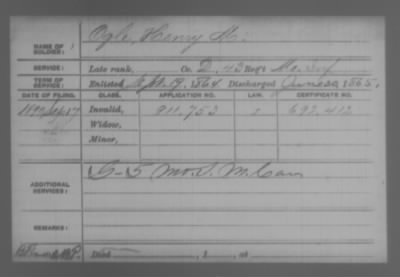 Ogle, Henry H.
NAME OF SOLDIER:
SERVICE: Late rank, Co. D, 43 Reg't Mo. Inf
TERM OF SERVICE: Enlisted 19, 1864 Discharged June 30, 1865.
DATE OF FILING. CLASS. APPLICATION NO. LAW. CERTIFICATE NO.
Invalid, 911.753 692.412
Widow,
Minor,
ADDITIONAL SERVICES: G-5 Mo. S. M. Cav
REMARKS:
Died , 1 , at